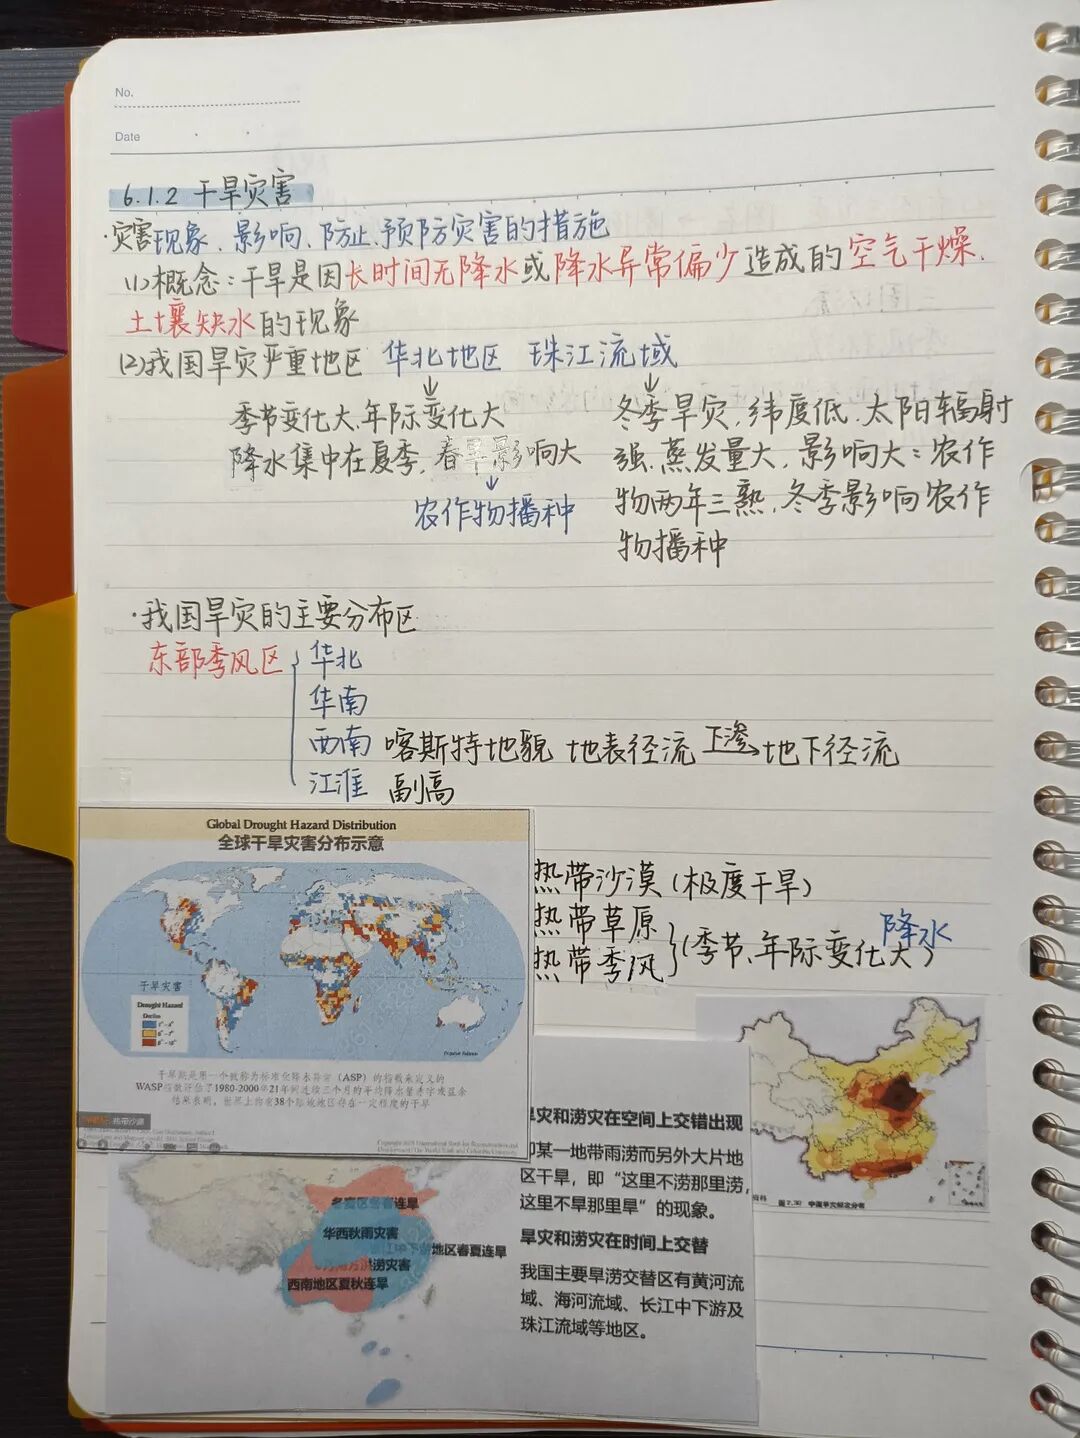 No.
Date
6.1.2 干旱灾害
·灾害现象、影响、防止、预防灾害的措施
(1)概念:干旱是因长时间无降水或降水异常偏少造成的空气干燥、
土壤缺水的现象
(2)我国旱灾严重地区 华北地区 珠江流域
↓ ↓
季节变化大、年际变化大
降水集中在夏季,春旱影响大
↓
农作物播种
冬季旱灾,纬度低、太阳辐射
强、蒸发量大,影响大:农作
物两年三熟,冬季影响农作
物播种
·我国旱灾的主要分布区
东部季风区 华北
华南
西南 喀斯特地貌 地表径流 下渗 地下径流
江淮 副高
Global Drought Hazard Distribution
全球干旱灾害分布示意
干旱灾害
Drought Hazard
Deciles
热带沙漠(极度干旱)
热带草原
热带季风
(季节、年际变化大)
降水
WASP指数评估了1980-2000年21年间连续三个月的平均降水量赤字或盈余
热带沙漠
旱灾和涝灾在空间上交错出现
即某一地带雨涝而另外大片地
区干旱,即“这里不涝那里涝,
这里不旱那里旱”的现象。
旱灾和涝灾在时间上交替
我国主要旱涝交替区有黄河流
域、海河流域、长江中下游及
珠江流域等地区。
华西秋雨灾害
地区春夏连旱
洪涝灾害
西南地区夏秋连旱